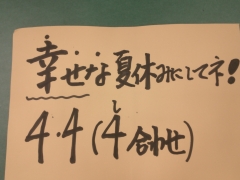 幸せな夏休みにしてネ!
4・4(4合わせ)
し